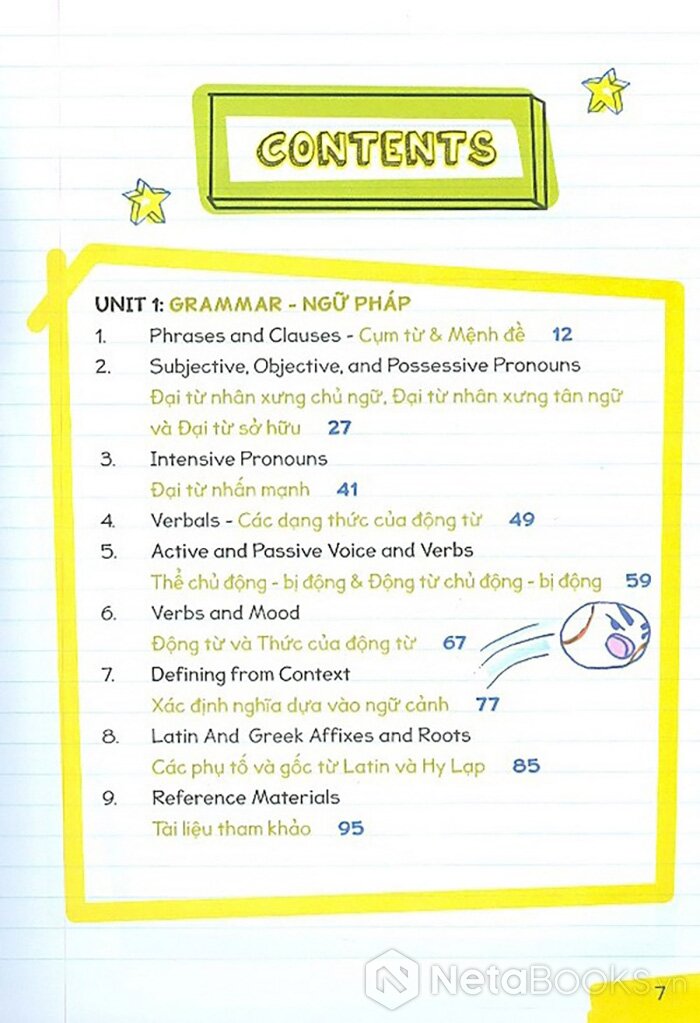 CONTENTS
UNIT 1: GRAMMAR - NGỮ PHÁP
1. Phrases and Clauses - Cụm từ & Mệnh đề 12
2. Subjective, Objective, and Possessive Pronouns
Đại từ nhân xưng chủ ngữ, Đại từ nhân xưng tân ngữ
và Đại từ sở hữu 27
3. Intensive Pronouns
Đại từ nhấn mạnh 41
4. Verbals - Các dạng thức của động từ 49
5. Active and Passive Voice and Verbs
Thể chủ động - bị động & Động từ chủ động - bị động 59
6. Verbs and Mood
Động từ và Thức của động từ 67
7. Defining from Context
Xác định nghĩa dựa vào ngữ cảnh 77
8. Latin And Greek Affixes and Roots
Các phụ tố và gốc từ Latin và Hy Lạp 85
9. Reference Materials
Tài liệu tham khảo 95
NETABOOKS.vn
7